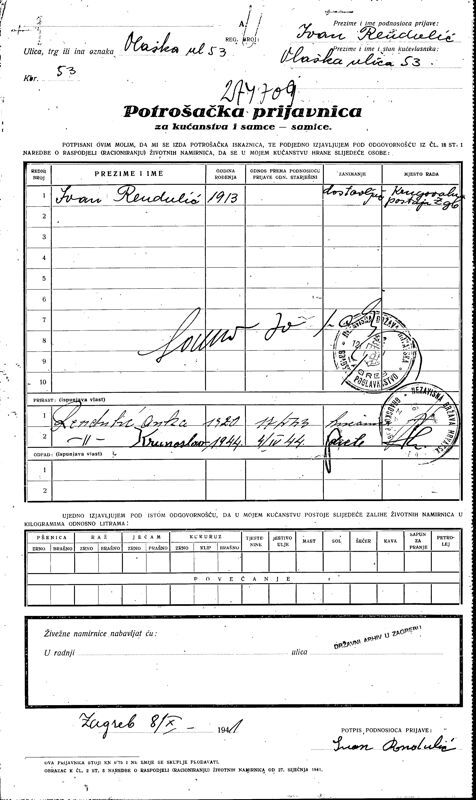 A.
REG. BROJ:
Prezime i ime podnosioca prijave:
Ivan Rendulić
Ulica, trg ili ina oznaka Vlaška ul 53
Prezime i ime i stan kućevlasnika:
Vlaška ulica 53.
Kbr. 53
274709
Potrošačka prijavnica
za kućanstva i samce — samice.
POTPISANI OVIM MOLIM, DA MI SE IZDA POTROŠAČKA ISKAZNICA, TE PODJEDNO IZJAVLJUJEM POD ODGOVORNOŠĆU IZ ČL. 18 ST. 1
NAREDBE O RASPODJELI (RACIONIRANJU) ŽIVOTNIH NAMIRNICA, DA SE U MOJEM KUĆANSTVU HRANE SLIJEDEĆE OSOBE:
REDNI BROJ
PREZIME I IME
GODINA ROĐENJA
ODNOS PREMA PODNOSIOCU PRIJAVE ODN. STARJEŠINI
ZANIMANJE
MJESTO RADA
1 Ivan Rendulić 1913
2
3
4
5
6
7
8
9
10
NEZAVISNA DRŽAVA HRVATSKA
POGLAVARSTVO
PRIRAST: (ispunjava vlast)
1 Rendulić 1920
2 — 11 — Krunoslav 1944. 4/IV 44. dijete
NEZAVISNA DRŽAVA HRVATSKA
OTPAD: (ispunjava vlast)
1
2
UJEDNO IZJAVLJUJEM POD ISTOM ODGOVORNOŠĆU, DA U MOJEM KUĆANSTVU POSTOJE SLIJEDEĆE ZALIHE ŽIVOTNIH NAMIRNICA U
KILOGRAMIMA ODNOSNO LITRAMA:
PŠENICA RAŽ JEČAM KUKURUZ TJESTENINE JESTIVO ULJE MAST SOL ŠEĆER KAVA SAPUN ZA PRANJE PETROLEJ
ZRNO BRAŠNO ZRNO BRAŠNO ZRNO BRAŠNO ZRNO KLIP BRAŠNO
POVEĆANJE
Živežne namirnice nabavljat ću:
U radnji ulica
DRŽAVNI ARHIV U ZAGREBU
Zagreb 8/X — 1941
POTPIS PODNOSIOCA PRIJAVE:
Ivan Rendulić
OVA PRIJAVNICA STOJI KN 0.75 I NE SMIJE SE SKUPLJE PRODAVATI.
OBRAZAC K ČL. 2 ST. 8 NAREDBE O RASPODJELI (RACIONIRANJU) ŽIVOTNIH NAMIRNICA OD 27. SIJEČNJA 1941.